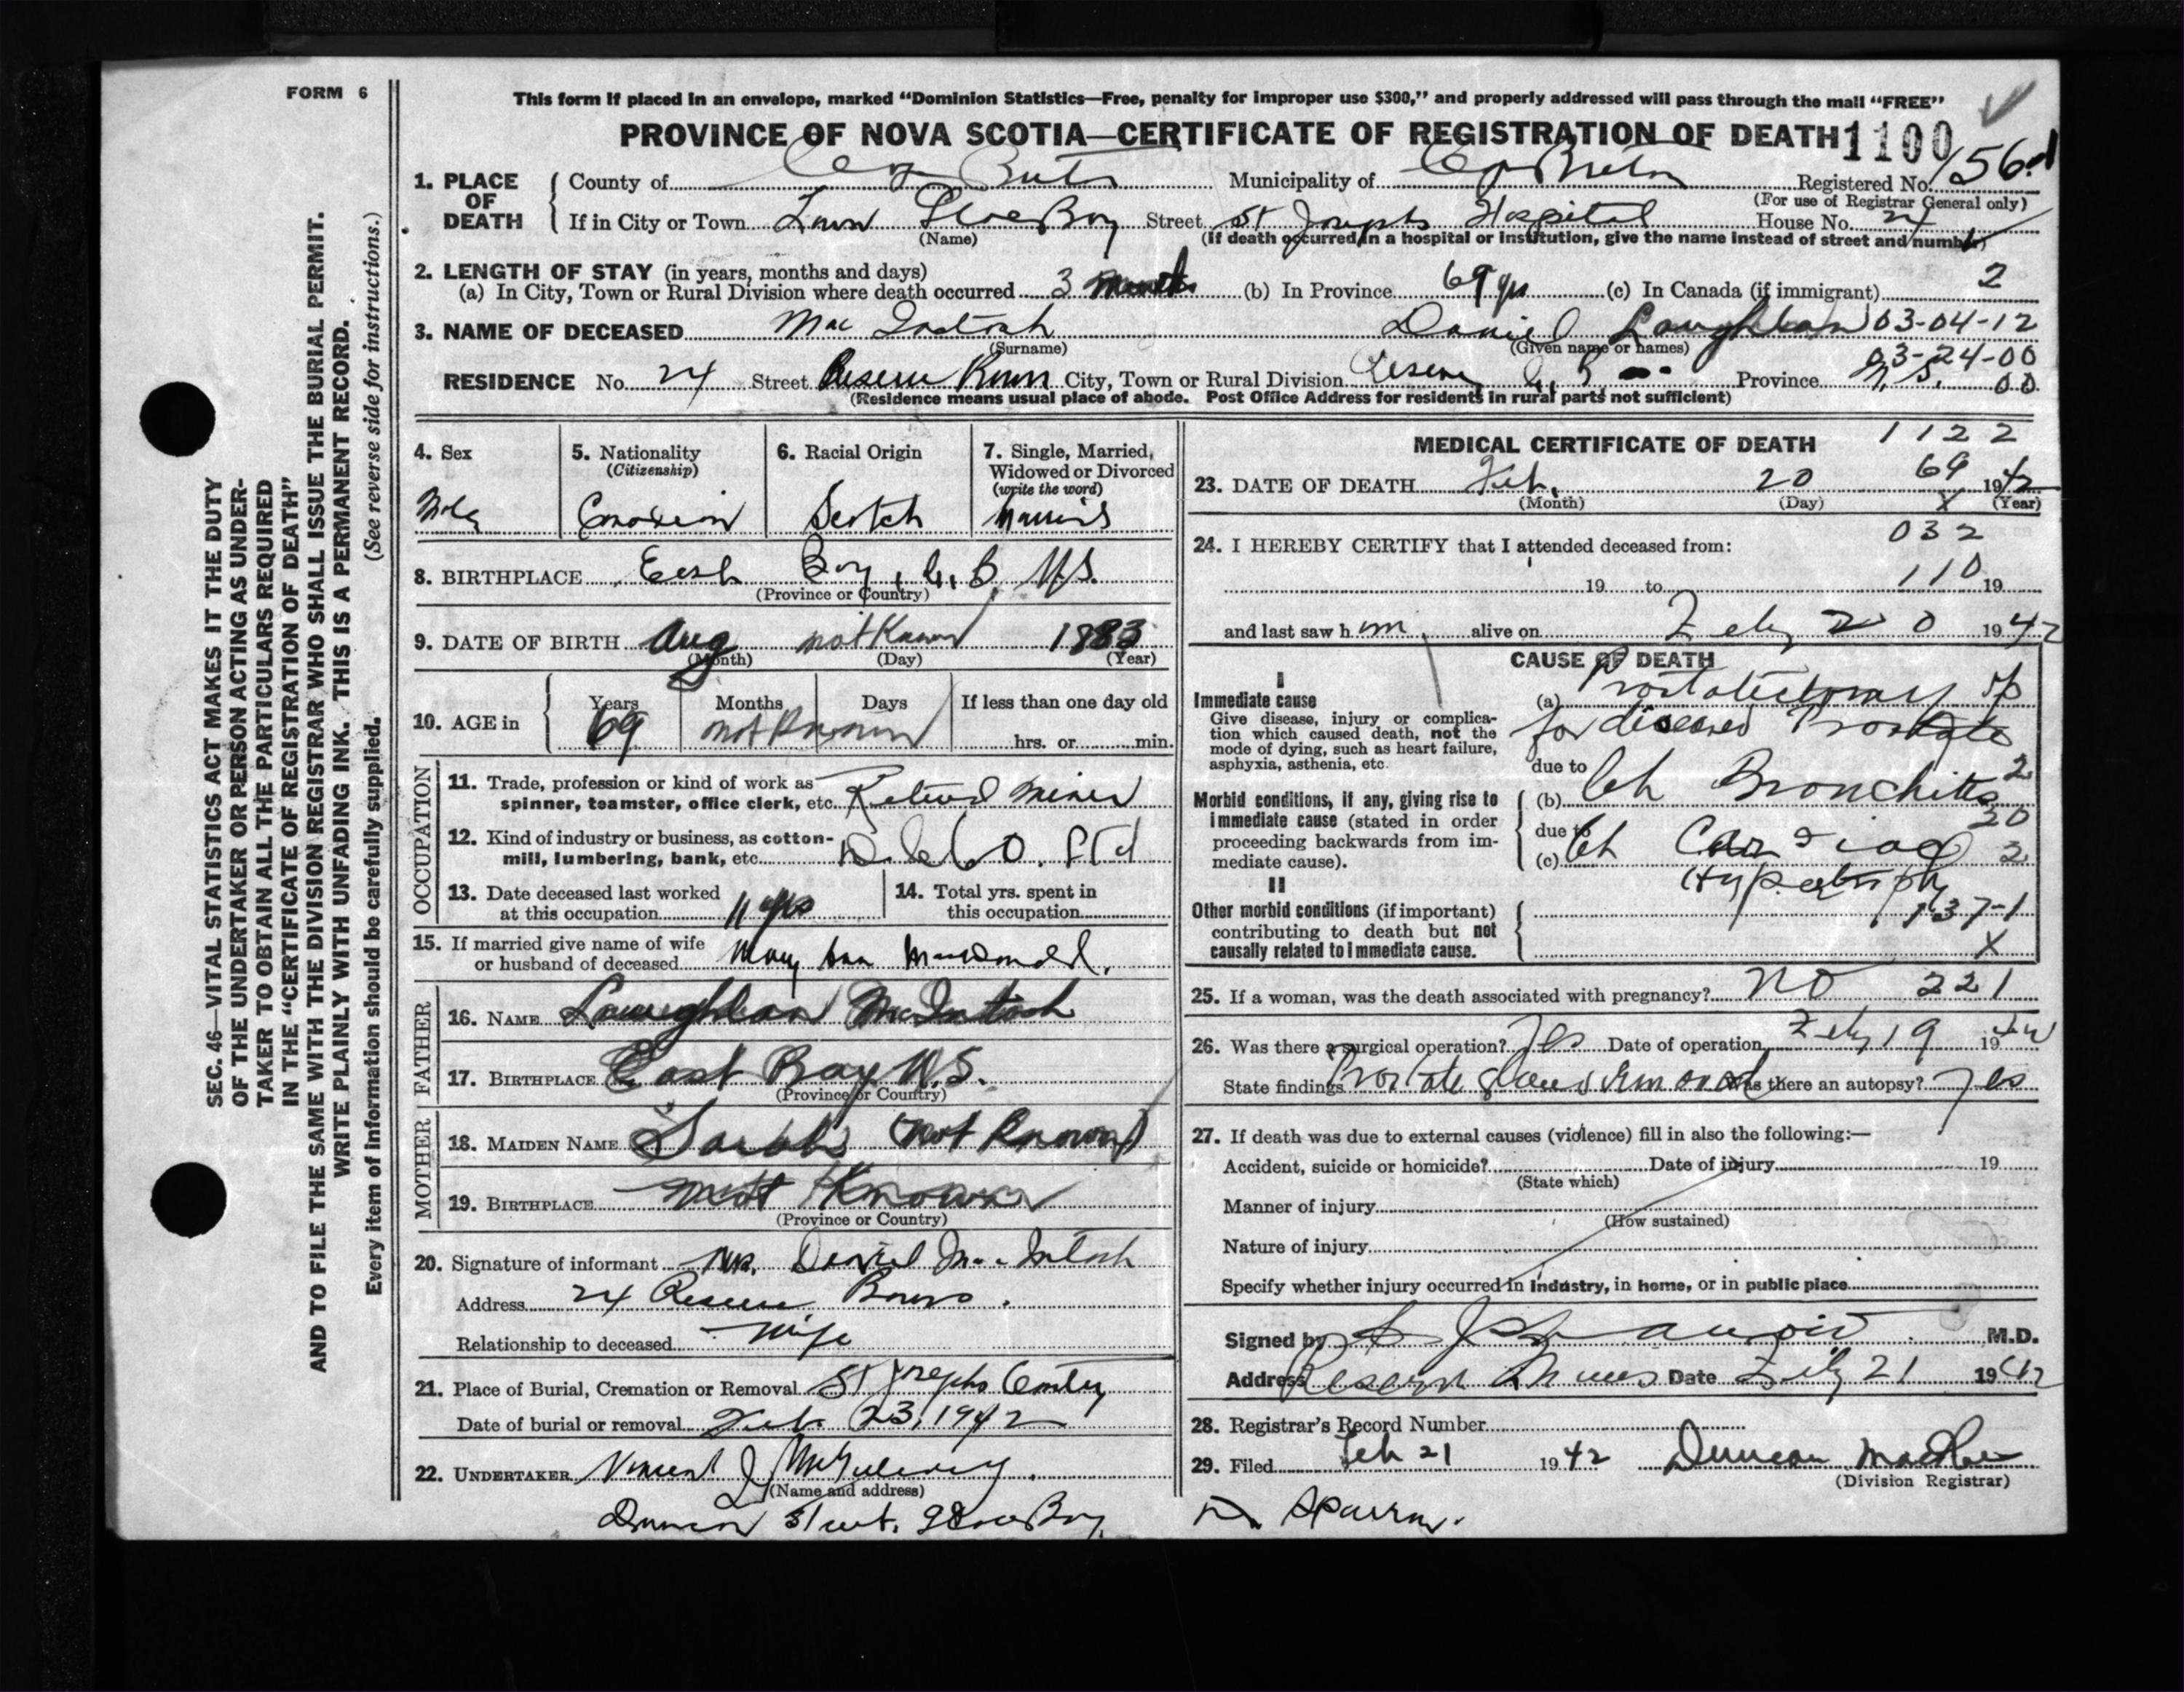 FORM 6
This form if placed in an envelope, marked “Dominion Statistics—Free, penalty for improper use $300,” and properly addressed will pass through the mail “FREE”
PROVINCE OF NOVA SCOTIA—CERTIFICATE OF REGISTRATION OF DEATH 1100
SEC. 46—VITAL STATISTICS ACT MAKES IT THE DUTY
OF THE UNDERTAKER OR PERSON ACTING AS UNDER-
TAKER TO OBTAIN ALL THE PARTICULARS REQUIRED
IN THE “CERTIFICATE OF REGISTRATION OF DEATH”
AND TO FILE THE SAME WITH THE DIVISION REGISTRAR WHO SHALL ISSUE THE BURIAL PERMIT.
WRITE PLAINLY WITH UNFADING INK. THIS IS A PERMANENT RECORD.
Every item of information should be carefully supplied. (See reverse side for instructions.)
1. PLACE OF DEATH
County of Cape Breton Municipality of Cape Breton Registered No. 156
(For use of Registrar General only)
If in City or Town Town Glace Bay Street St Josephs Hospital House No. 24
(Name) (If death occurred in a hospital or institution, give the name instead of street and number)
2. LENGTH OF STAY (in years, months and days)
(a) In City, Town or Rural Division where death occurred 3 (b) In Province 69 yrs (c) In Canada (if immigrant) 2
3. NAME OF DECEASED Mac Intosh Daniel Laughlan 03-04-12
(Surname) (Given name or names)
03-24-00
RESIDENCE No. 24 Street Reserve Rows City, Town or Rural Division Reserve C. B. Province N. S. 00
(Residence means usual place of abode. Post Office Address for residents in rural parts not sufficient)
4. Sex Male
5. Nationality (Citizenship) Canadian
6. Racial Origin Scotch
7. Single, Married, Widowed or Divorced (write the word) Married
8. BIRTHPLACE East Bay, C. B. N.S.
(Province or Country)
9. DATE OF BIRTH Aug not Known 1883
(Month) (Day) (Year)
10. AGE in Years Months Days If less than one day old
69 not Known hrs. or min.
OCCUPATION
11. Trade, profession or kind of work as spinner, teamster, office clerk, etc. Retired Miner
12. Kind of industry or business, as cotton-mill, lumbering, bank, etc.
13. Date deceased last worked at this occupation 11 yrs
14. Total yrs. spent in this occupation
15. If married give name of wife or husband of deceased Mary Ann MacDonald.
FATHER
16. NAME Laughlan McIntosh
17. BIRTHPLACE East Bay N.S.
(Province or Country)
MOTHER
18. MAIDEN NAME Sarah (not Known)
19. BIRTHPLACE not Known
(Province or Country)
20. Signature of informant Mrs. Daniel MacIntosh
Address 24 Reserve Rows.
Relationship to deceased Wife
21. Place of Burial, Cremation or Removal St Josephs Cemtery
Date of burial or removal Feb. 23, 1942
22. UNDERTAKER Vincent J
(Name and address)
Street, Glace Bay,
MEDICAL CERTIFICATE OF DEATH 1122
69
23. DATE OF DEATH Feb. 20 1942
(Month) (Day) X (Year)
032
24. I HEREBY CERTIFY that I attended deceased from:
110
19 to 19
and last saw him alive on Feby 20 1942
CAUSE OF DEATH
I
Immediate cause
Give disease, injury or complica-
tion which caused death, not the
mode of dying, such as heart failure,
asphyxia, asthenia, etc.
(a) Prostatectomy
for diseased Prostate
due to
Morbid conditions, if any, giving rise to
immediate cause (stated in order
proceeding backwards from im-
mediate cause).
(b) Ch Bronchitis 2
20
due to
(c) Ch Cardiac 2
Hypertrophy
II
Other morbid conditions (if important)
contributing to death but not
causally related to immediate cause.
137-1
X
25. If a woman, was the death associated with pregnancy? NO 221
26. Was there a surgical operation? Yes Date of operation Feby 19 1942
State findings Prostate gland removed Was there an autopsy? Yes
27. If death was due to external causes (violence) fill in also the following:—
Accident, suicide or homicide? Date of injury 19
(State which)
Manner of injury
(How sustained)
Nature of injury
Specify whether injury occurred in industry, in home, or in public place
Signed by M.D.
Address Reserve Mines Date Feby 21 1942
28. Registrar's Record Number
29. Filed Feb 21 1942 Duncan
(Division Registrar)